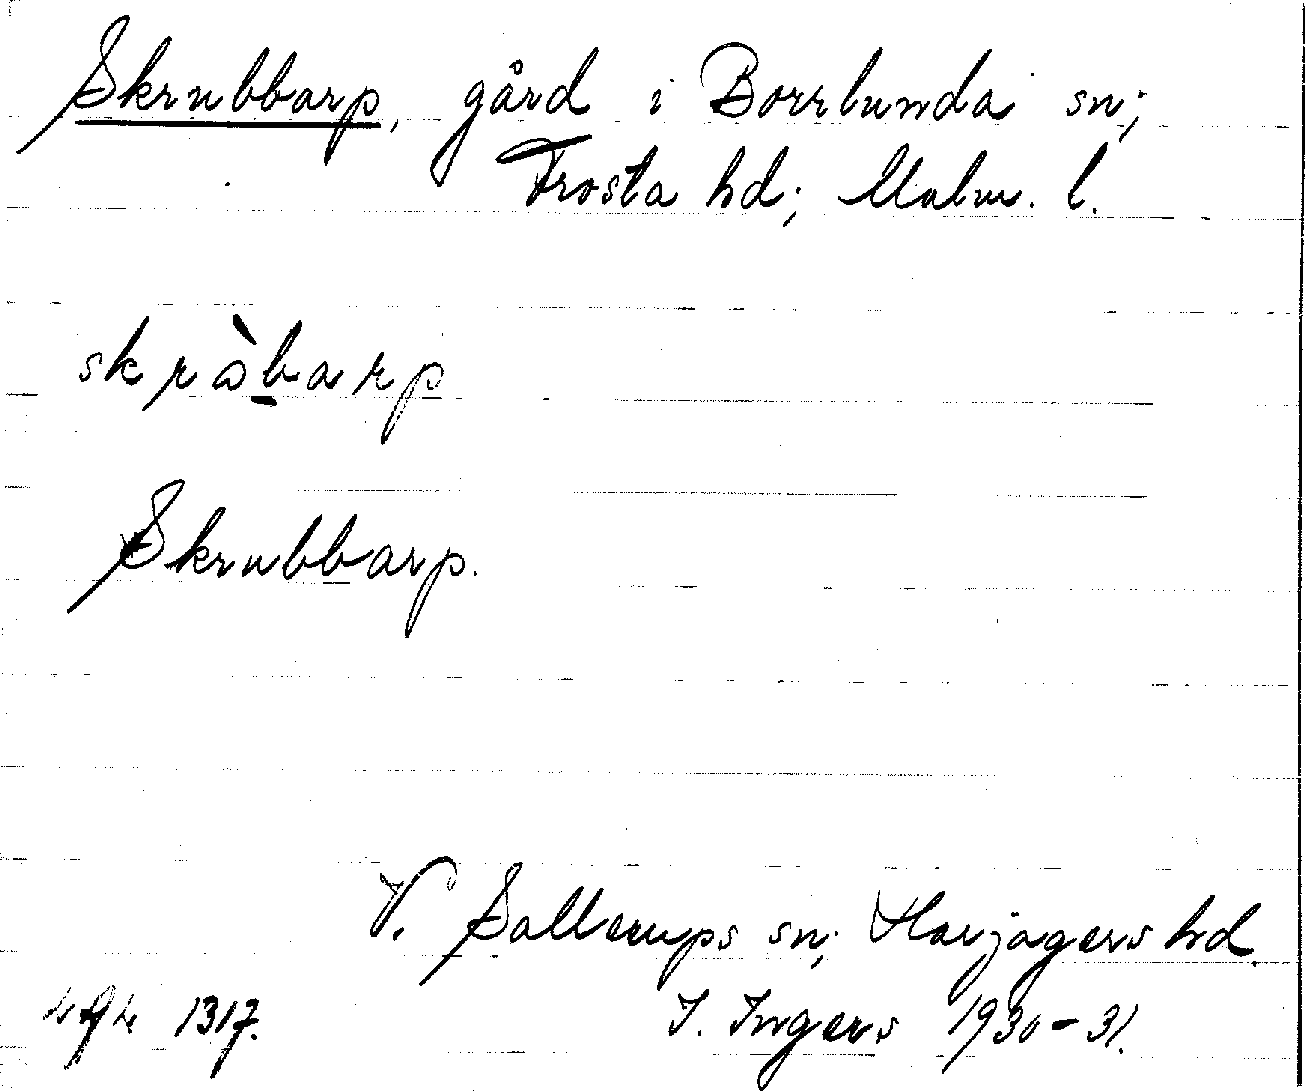 Skrubbarp, gård i Borrlunda sn;
Frosta hd; Malm. l.
skròbarp
Skrubbarp.
V. Sallerups sn; Harjagers hd.
1317. I. Ingers 1930-31.